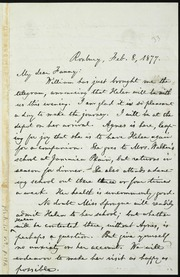 Roxbury, Feb. 8, 1877.
My dear Fanny,
William has just brought me the
telegram, announcing that Helen will be with
us this evening. I am glad it is so pleasant
a day to make the journey. I will be at the
depot on her arrival. Agnes is here, leap-
ing for joy that she is to have Helen again
for a companion. She goes to Mrs.
school at Jamaica Plain, but returns in
season for dinner. She also attends a danc-
ing school out there three or four times
a week. Her health is uncommonly good.
No doubt Miss Sprague will readily
admit Helen to her school; but whether
will be contented there, without Agnes, is
perhaps a question. But give yourself
no anxiety on any account. We will
endeavor to make her visit as happy as
possible.